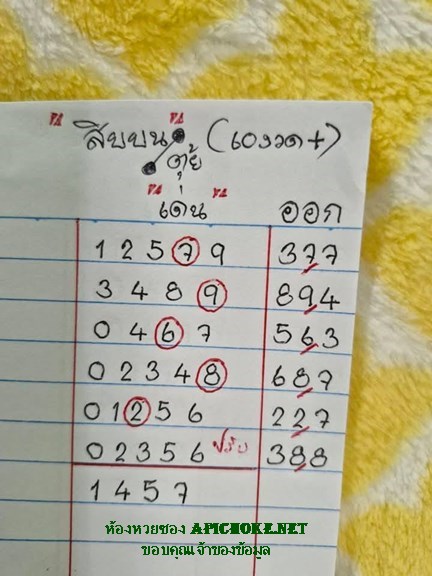 สิบบน (เองวด+)
ตุ้ย
เด่น ออก
1 2 5 7 9 377
3 4 8 9 894
0 4 6 7 563
0 2 3 4 8 687
0 1 2 5 6 227
0 2 3 5 6 ปรับ 388
1 4 5 7
ห้องหวยซอง APICHOKE.NET
ขอบคุณเจ้าของข้อมูล